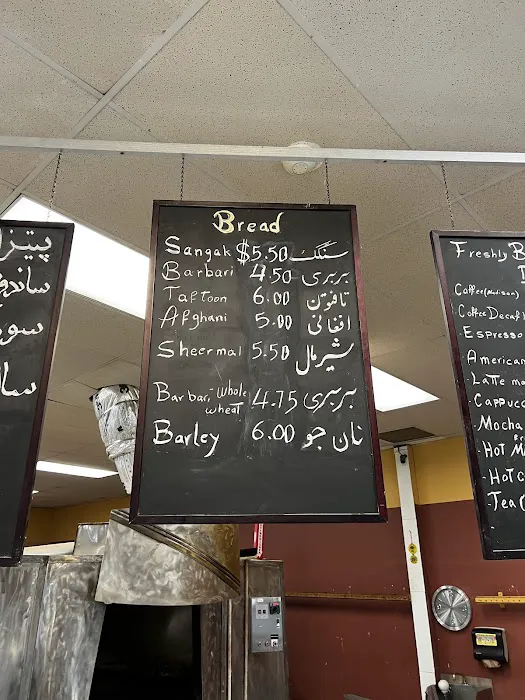 پیتزا
ساندو
سو
سالا
Bread
Sangak $5.50 سنگک
Barbari 4.50 بربری
Taftoon 6.00 تافتون
Afghani 5.00 افغانی
Sheermal 5.50 شیرمال
Barbari-Whole wheat 4.75 بربری
Barley 6.00 نان جو
Freshly B
Coffee (Medium)
Coffee Decaf
Espresso
American
Latte
Cappucc
Mocha
Hot M
Hot C
Tea (